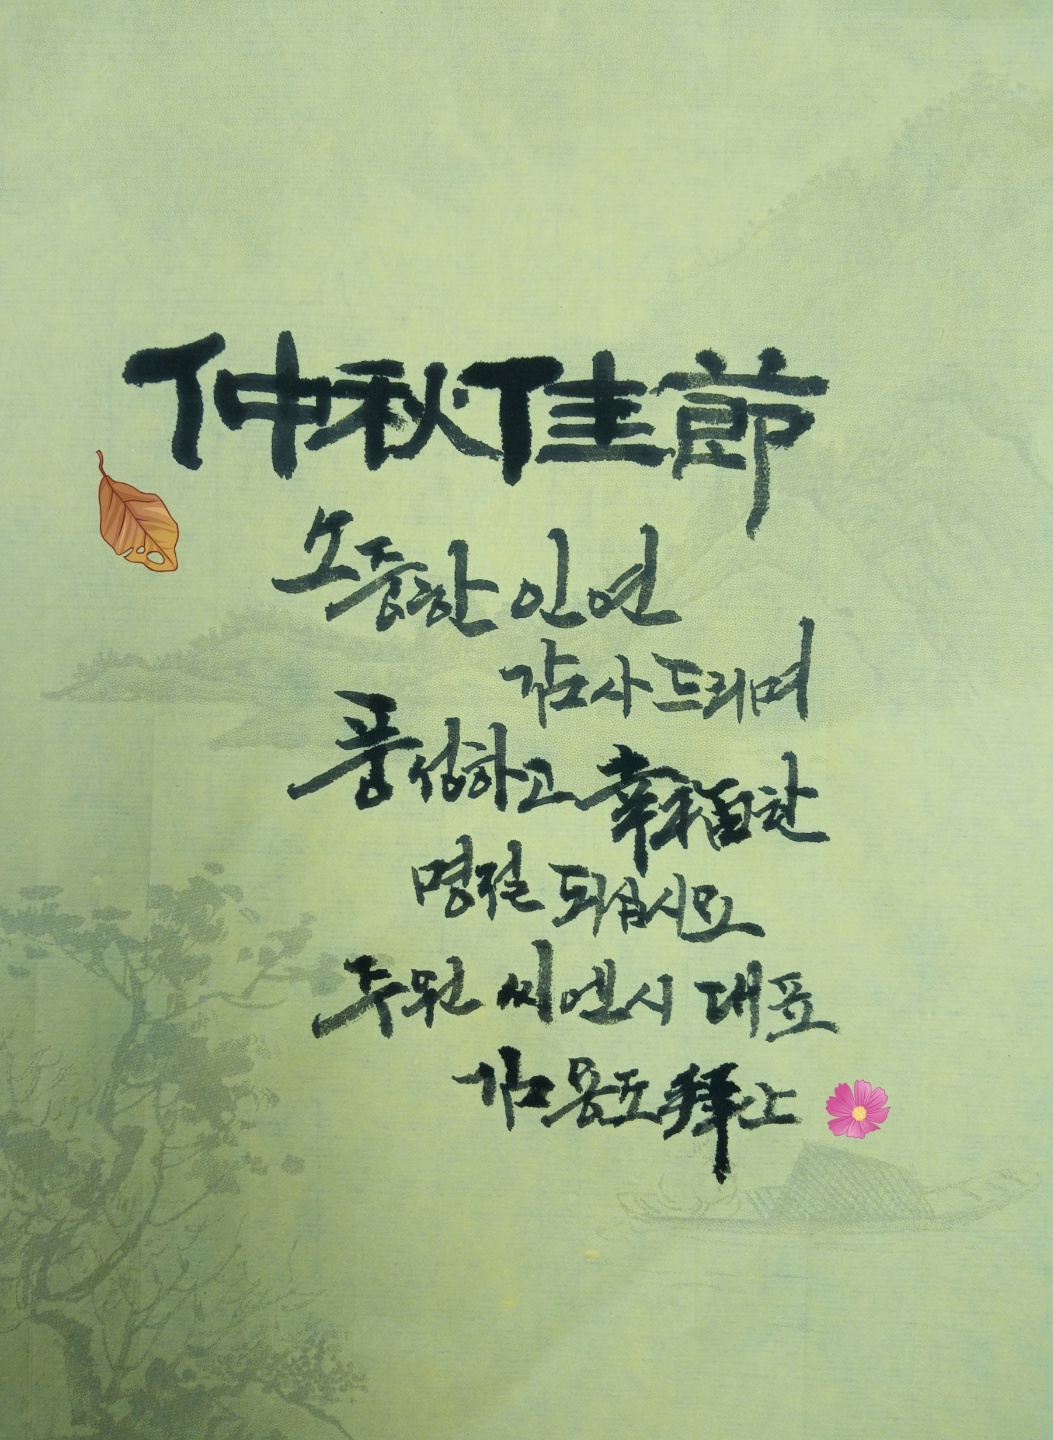 仲秋佳節
소중한 인연
감사드리며
풍성하고 幸福한
명절 되십시요
두원 씨엔시 대표
김용도 拜上